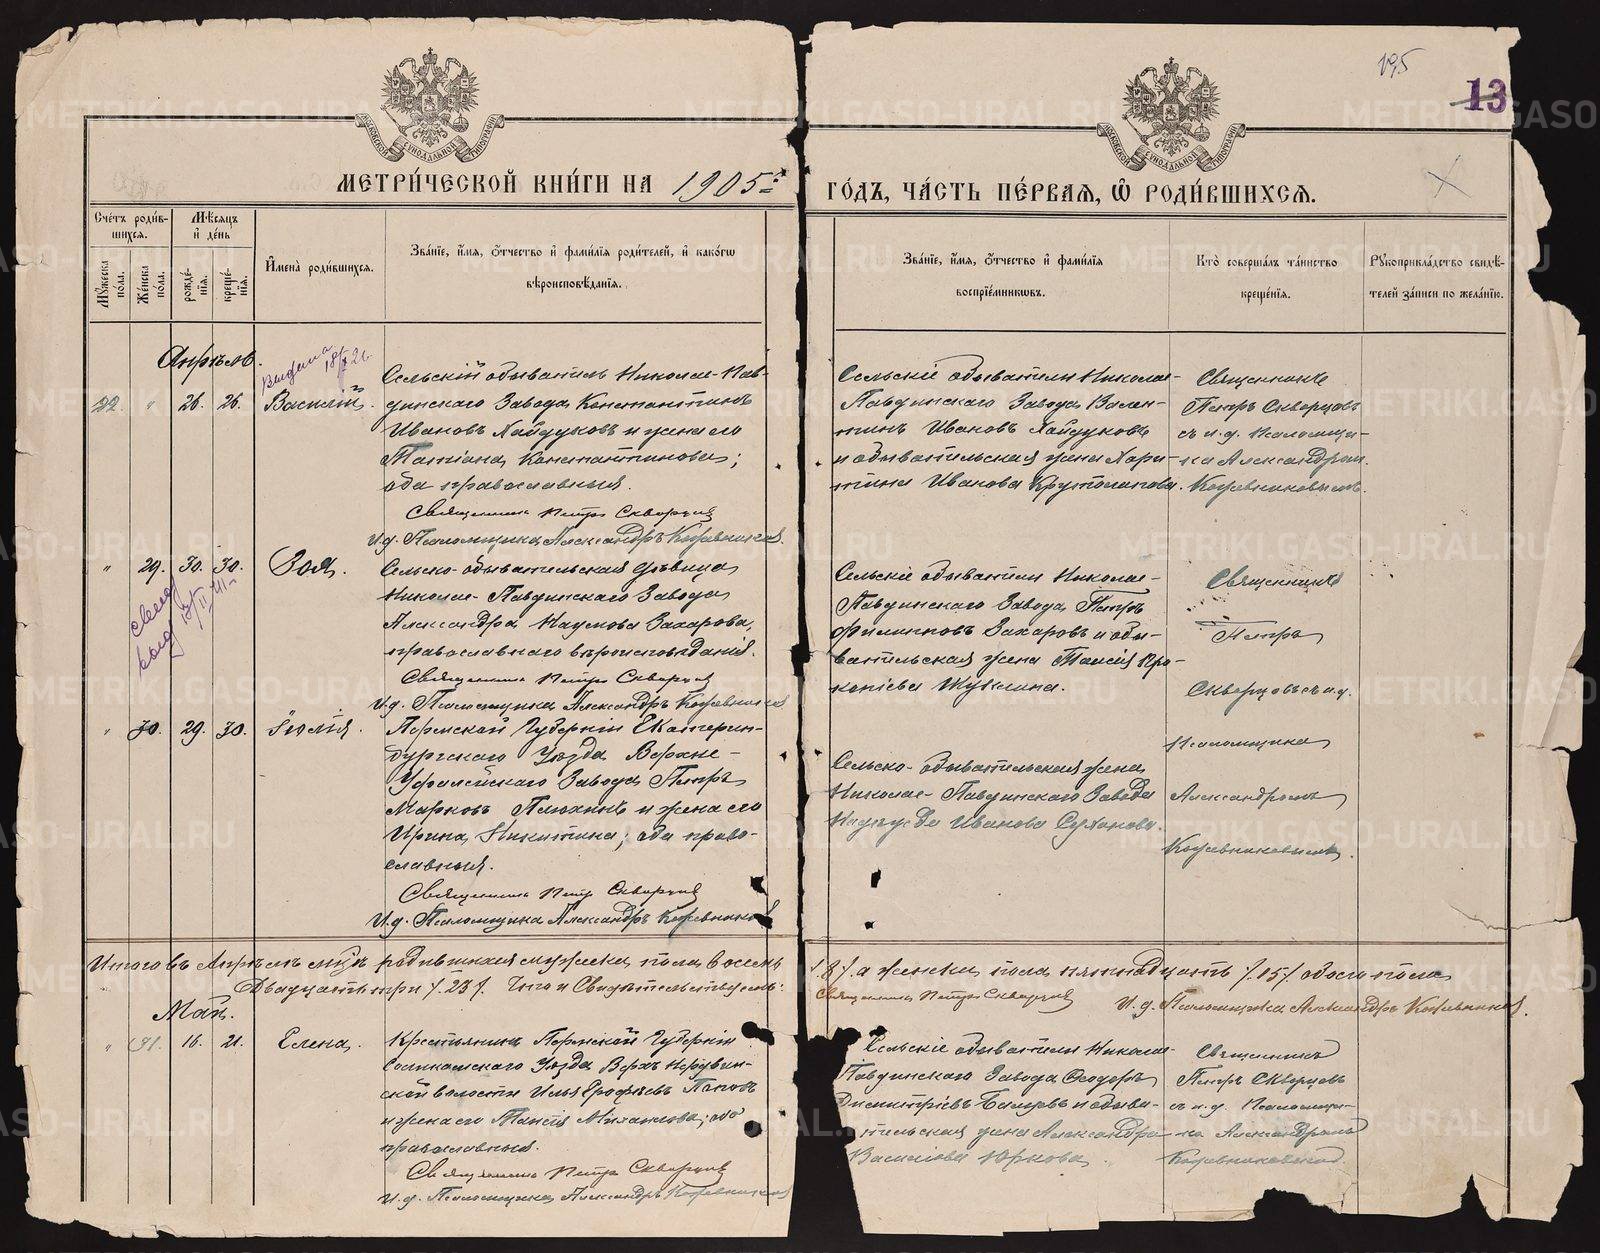 195
13
МЕТРИ́ЧЕСКОЙ КНИ́ГИ НА 1905 г.
ГО́ДЪ, ЧА́СТЬ ПЕ́РВАЯ, Ѽ РОДИ́ВШИХСЯ.
Сче́тъ роди́в-
шихся.
Мѣ́сяцъ
и҆ де́нь
Мꙋ́жеска по́ла.
Же́нска по́ла.
рожде́-
нїѧ.
креще́-
нїѧ.
И҆мена̀ роди́вшихся.
Зва́нїе, и҆́мя, ѻ҆́тчество и҆ фами́лїя роди́телей, и҆ како́гѡ
вѣроисповѣ́данїя.
Зва́нїе, и҆́мя, ѻ҆́тчество и҆ фами́лїя
воспрїе́мниковъ.
Кто̀ соверша́лъ та́инство
креще́нїя.
Рꙋкоприкла́дство свидѣ́-
телей за́писи по жела́нїю.
Апрѣль.
22. " 26. 26. Василій.
Выдана
Сельскій обыватель Николае-Пав-
динскаго Завода Константинъ
Ивановъ Хайдуковъ и жена его
Татіана Константинова;
оба православные.
Священникъ Петръ Скворцовъ
И.д. Псаломщика Александръ Кожевниковъ.
Сельскіе обыватели Николае-
Павдинскаго Завода Вален-
тинъ Ивановъ Хайдуковъ
и обывательская жена Хари-
тина Иванова Крутолапова.
Священникъ
Петръ Скворцовъ
съ и.д. Псаломщи-
ка Александромъ
Кожевниковымъ.
" 29. 30. 30. Зоя.
Сельско-обывательская дѣвица
Николае-Павдинскаго Завода
Александра Наумова Захарова,
православнаго вѣроисповѣданія.
Священникъ Петръ Скворцовъ
И.д. Псаломщика Александръ Кожевниковъ
Сельскіе обыватели Николае-
Павдинскаго Завода Петръ
Филипповъ Захаровъ и обы-
вательская жена Таисія Про-
копіева
Священникъ
Петръ
Скворцовъ съ и.д.
Псаломщика
Александромъ
Кожевниковымъ.
" 30. 29. 30. Іюлія.
Пермской Губерніи Екатерин-
бургскаго Уѣзда Верхне-
Уфалейскаго Завода Петръ
Марковъ Плюхинъ и жена его
Ирина Никитина; оба право-
славные.
Священникъ Петръ Скворцовъ
И.д. Псаломщика Александръ Кожевниковъ
Сельско-обывательская жена
Николае-Павдинскаго Завода
Иванова Суханова.
Итого въ Апрѣлѣ мѣс. родившихся мужеска пола восемь /8/, а женска пола пятнадцать /15/ обоего пола
Двадцать три /23/. Что и Свидѣтельствуемъ:
Священникъ Петръ Скворцовъ И.д. Псаломщика Александръ Кожевниковъ.
Май.
" 31. 16. 21. Елена.
Крестьянинъ Пермской Губерніи
Соликамскаго Уѣзда
волости Илья Ерофѣевъ Поповъ
и жена его Таисія Михаилова; оба
православные.
Священникъ Петръ Скворцовъ
И.д. Псаломщика Александръ Кожевниковъ
Сельскіе обыватели Николае-
Павдинскаго Завода Ѳеодоръ
Димитріевъ и обыва-
тельская жена Александра
Василіева Юркова.
Священникъ
Петръ Скворцовъ
съ и.д. Псаломщи-
ка Александромъ
Кожевниковымъ
METRIKI.GASO-URAL.RU